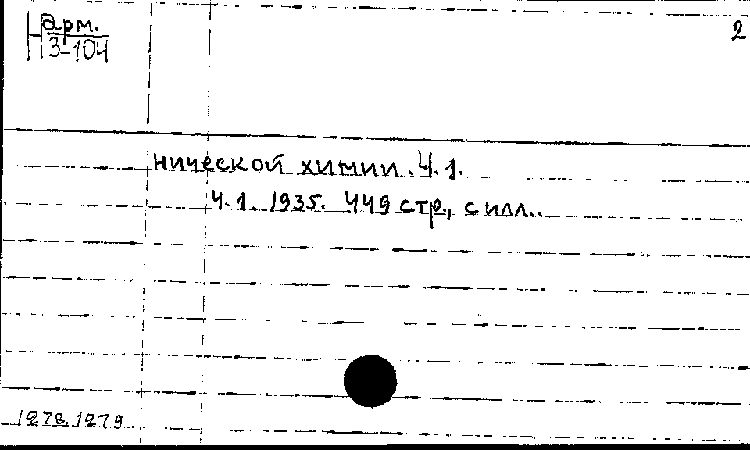 арм.
2
3-104
нической химии. Ч. 1.
Ч. 1. 1935. 449 стр., с илл..
1278, 1279